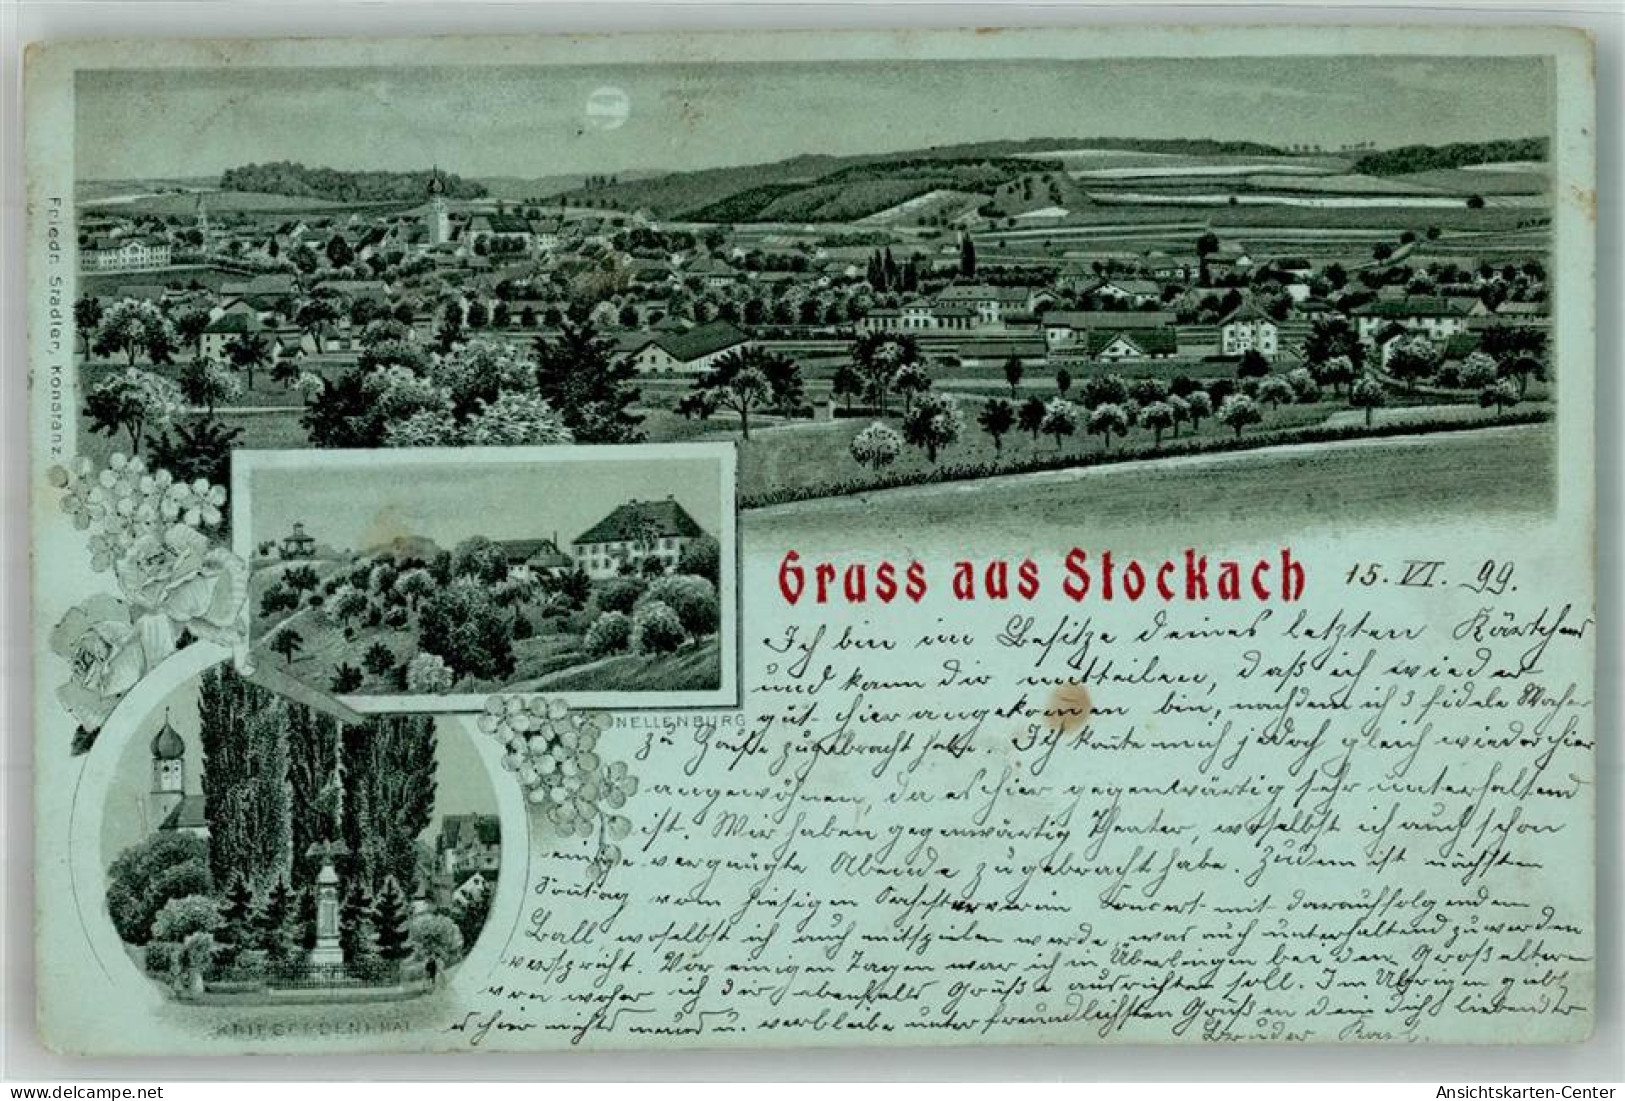 Friedr. Stadler, Konstanz.
Gruss aus Stockach 15. VI. 99.
Ich bin im Besitze deines letzten Kärtchens
und kann dir mitteilen, daß ich wieder
NELLENBURG
gut hier angekommen bin, nachdem ich 3 fidele Wochen
zu Hause zugebracht habe. Ich konnte mich jedoch gleich wieder hier
angewöhnen, da es hier gegenwärtig sehr unterhaltend
ist. Wir haben gegenwärtig Theater, woselbst ich auch schon
einige vergnügte Abende zugebracht habe. Zudem ist nächsten
Sonntag vom hiesigen Concert mit darauffolgendem
Ball, woselbst ich auch mitspielen werde, was auch unterhaltend zu werden
verspricht. Vor einigen Tagen war ich in Überlingen bei den Großeltern
von woher ich dir ebenfalls Grüße ausrichten soll. Im Übrigen gibt
KRIEGERDENKMAL
es hier nichts neues u. verbleibe unter freundlichsten Grüßen dein dich liebender
Bruder Karl.
Ansichtskarten-Center